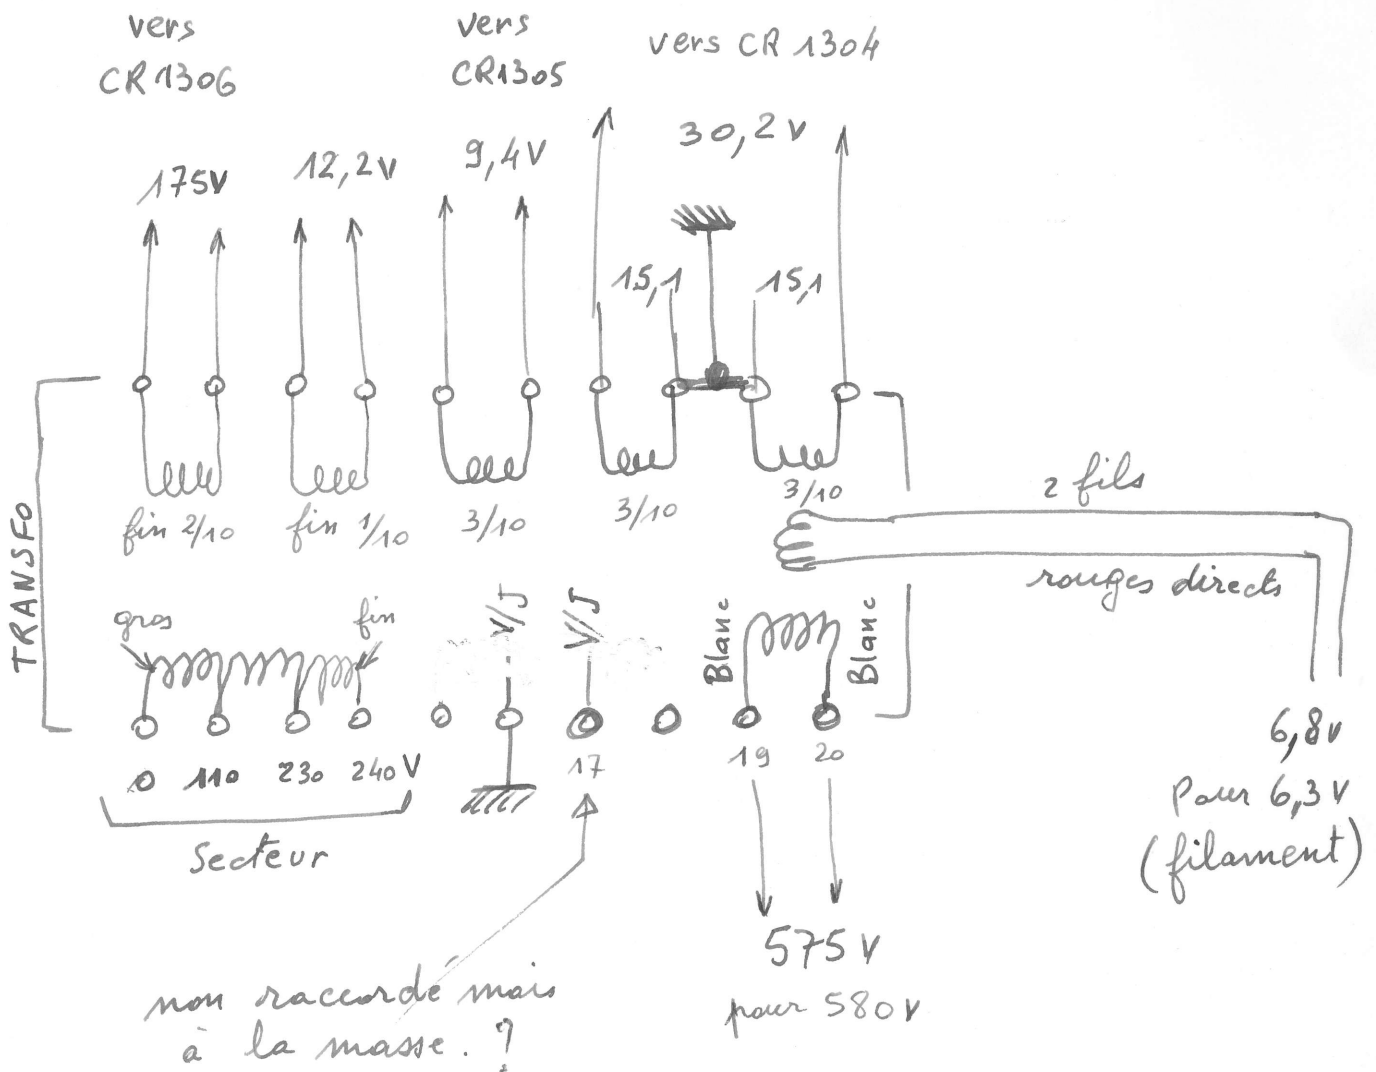 vers
CR 1306
vers
CR1305
vers CR 1304
175V
12,2V
9,4V
30,2V
15,1
15,1
TRANSFO
fin 2/10
fin 1/10
3/10
3/10
3/10
2 fils
rouges directs
gros
fin
V/J
V/J
Blanc
Blanc
0 110 230 240V
17
19
20
Secteur
6,8V
Pour 6,3V
(filament)
575V
pour 580V
non raccordé mais
à la masse. ?